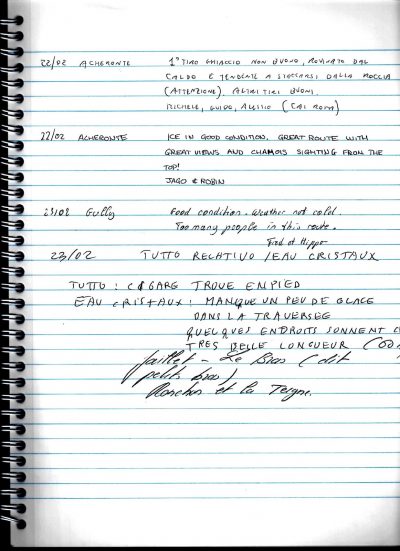 22/02 ACHERONTE 1° TIRO GHIACCIO NON BUONO, ROVINATO DAL
CALDO E TENDENTE A STACCARSI DALLA ROCCIA
(ATTENZIONE). ALTRI TIRI BUONI.
MICHELE, GUIDO, ALESSIO (CAI ROMA)
22/02 ACHERONTE ICE IN GOOD CONDITION. GREAT ROUTE WITH
GREAT VIEWS AND CHAMOIS SIGHTING FROM THE
TOP!
JAGO & ROBIN
23/02 Gully Good condition. Weather not cold.
Too many people in this route.
Fred et Hippo
23/02 TUTTO RELATIVO / EAU CRISTAUX
TUTTO : CIGARE TROUE EN PIED
EAU CRISTAUX : MANQUE UN PEU DE GLACE
DANS LA TRAVERSEE
QUELQUES ENDROITS SONNENT
TRES BELLE LONGUEUR
Jaillet - Le Bras (dit
petits bras)
Ronchon et la Teigne.